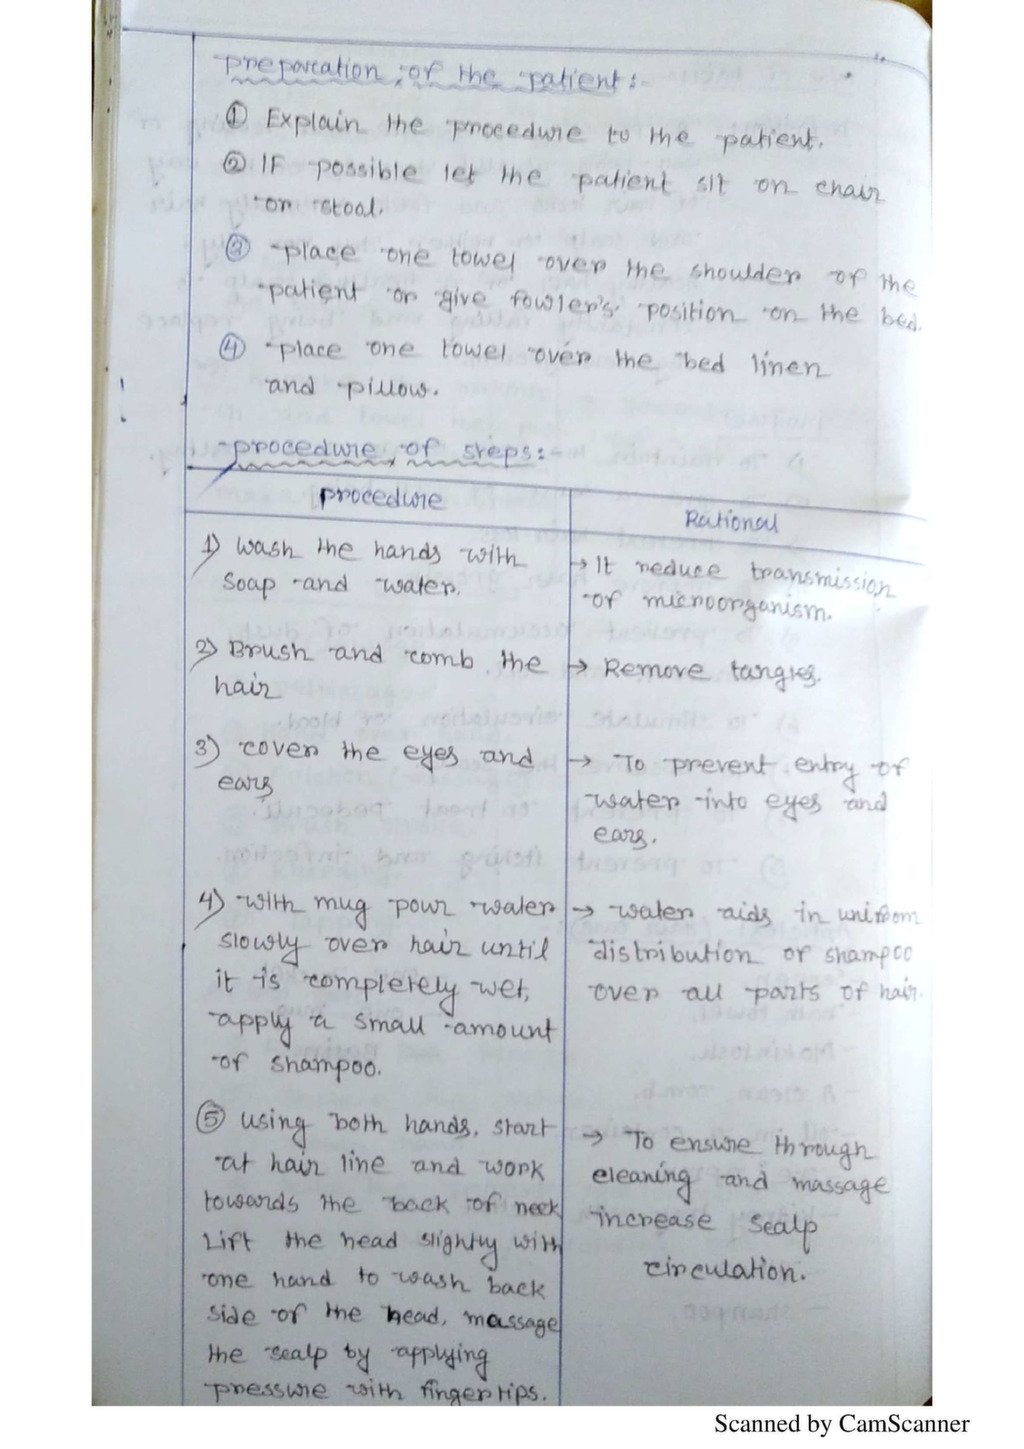 Preparation of the patient:-
① Explain the procedure to the patient.
② If possible let the patient sit on chair
or stool.
③ place one towel over the shoulder of the
patient or give fowler's position on the bed.
④ place one towel over the bed linen
and pillow.
procedure of steps:-
procedure
Rational
1) wash the hands with
soap and water.
→ It reduce transmission
of microorganism.
2) Brush and comb the
hair
→ Remove tangles.
3) cover the eyes and
ears
→ To prevent entry of
water into eyes and
ears.
4) with mug pour water
slowly over hair until
it is completely wet,
apply a small amount
of shampoo.
→ water aids in unifom
distribution of shampoo
over all parts of hair.
⑤ using both hands, start
at hair line and work
towards the back of neck
Lift the head slightly with
one hand to wash back
side of the head, massage
the scalp by applying
pressure with fingertips.
→ To ensure through
cleaning and massage
increase scalp
circulation.
Scanned by CamScanner